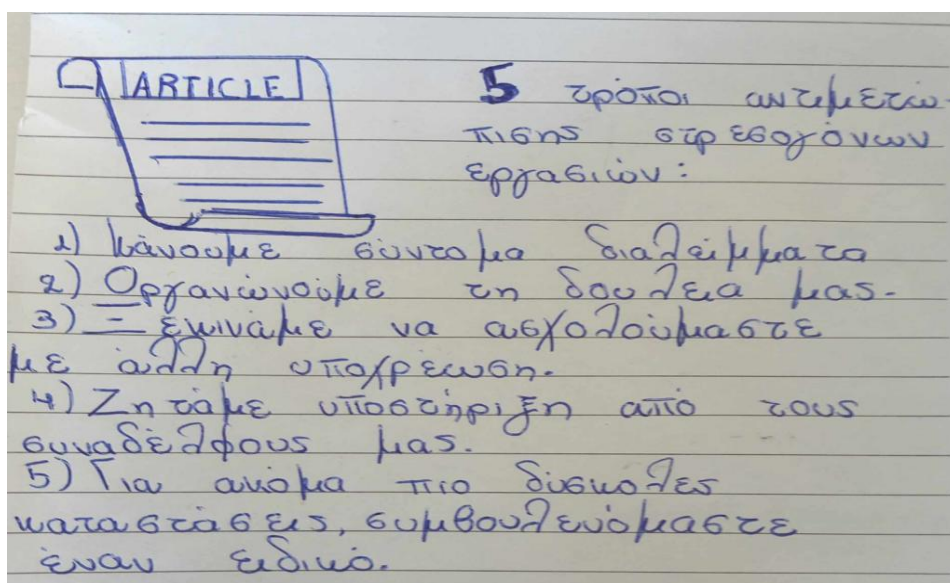 ARTICLE
5 τρόποι αντιμετώ
πισης στρεσογόνων
εργασιών:
1) Κάνουμε σύντομα διαλείμματα
2) Οργανώνουμε τη δουλεια μας.
3) Ξεκινάμε να ασχολούμαστε
με άλλη υποχρέωση.
4) Ζητάμε υποστήριξη από τους
συναδέλφους μας.
5) Για ακόμα πιο δύσκολες
καταστάσεις, συμβουλευόμαστε
έναν ειδικό.